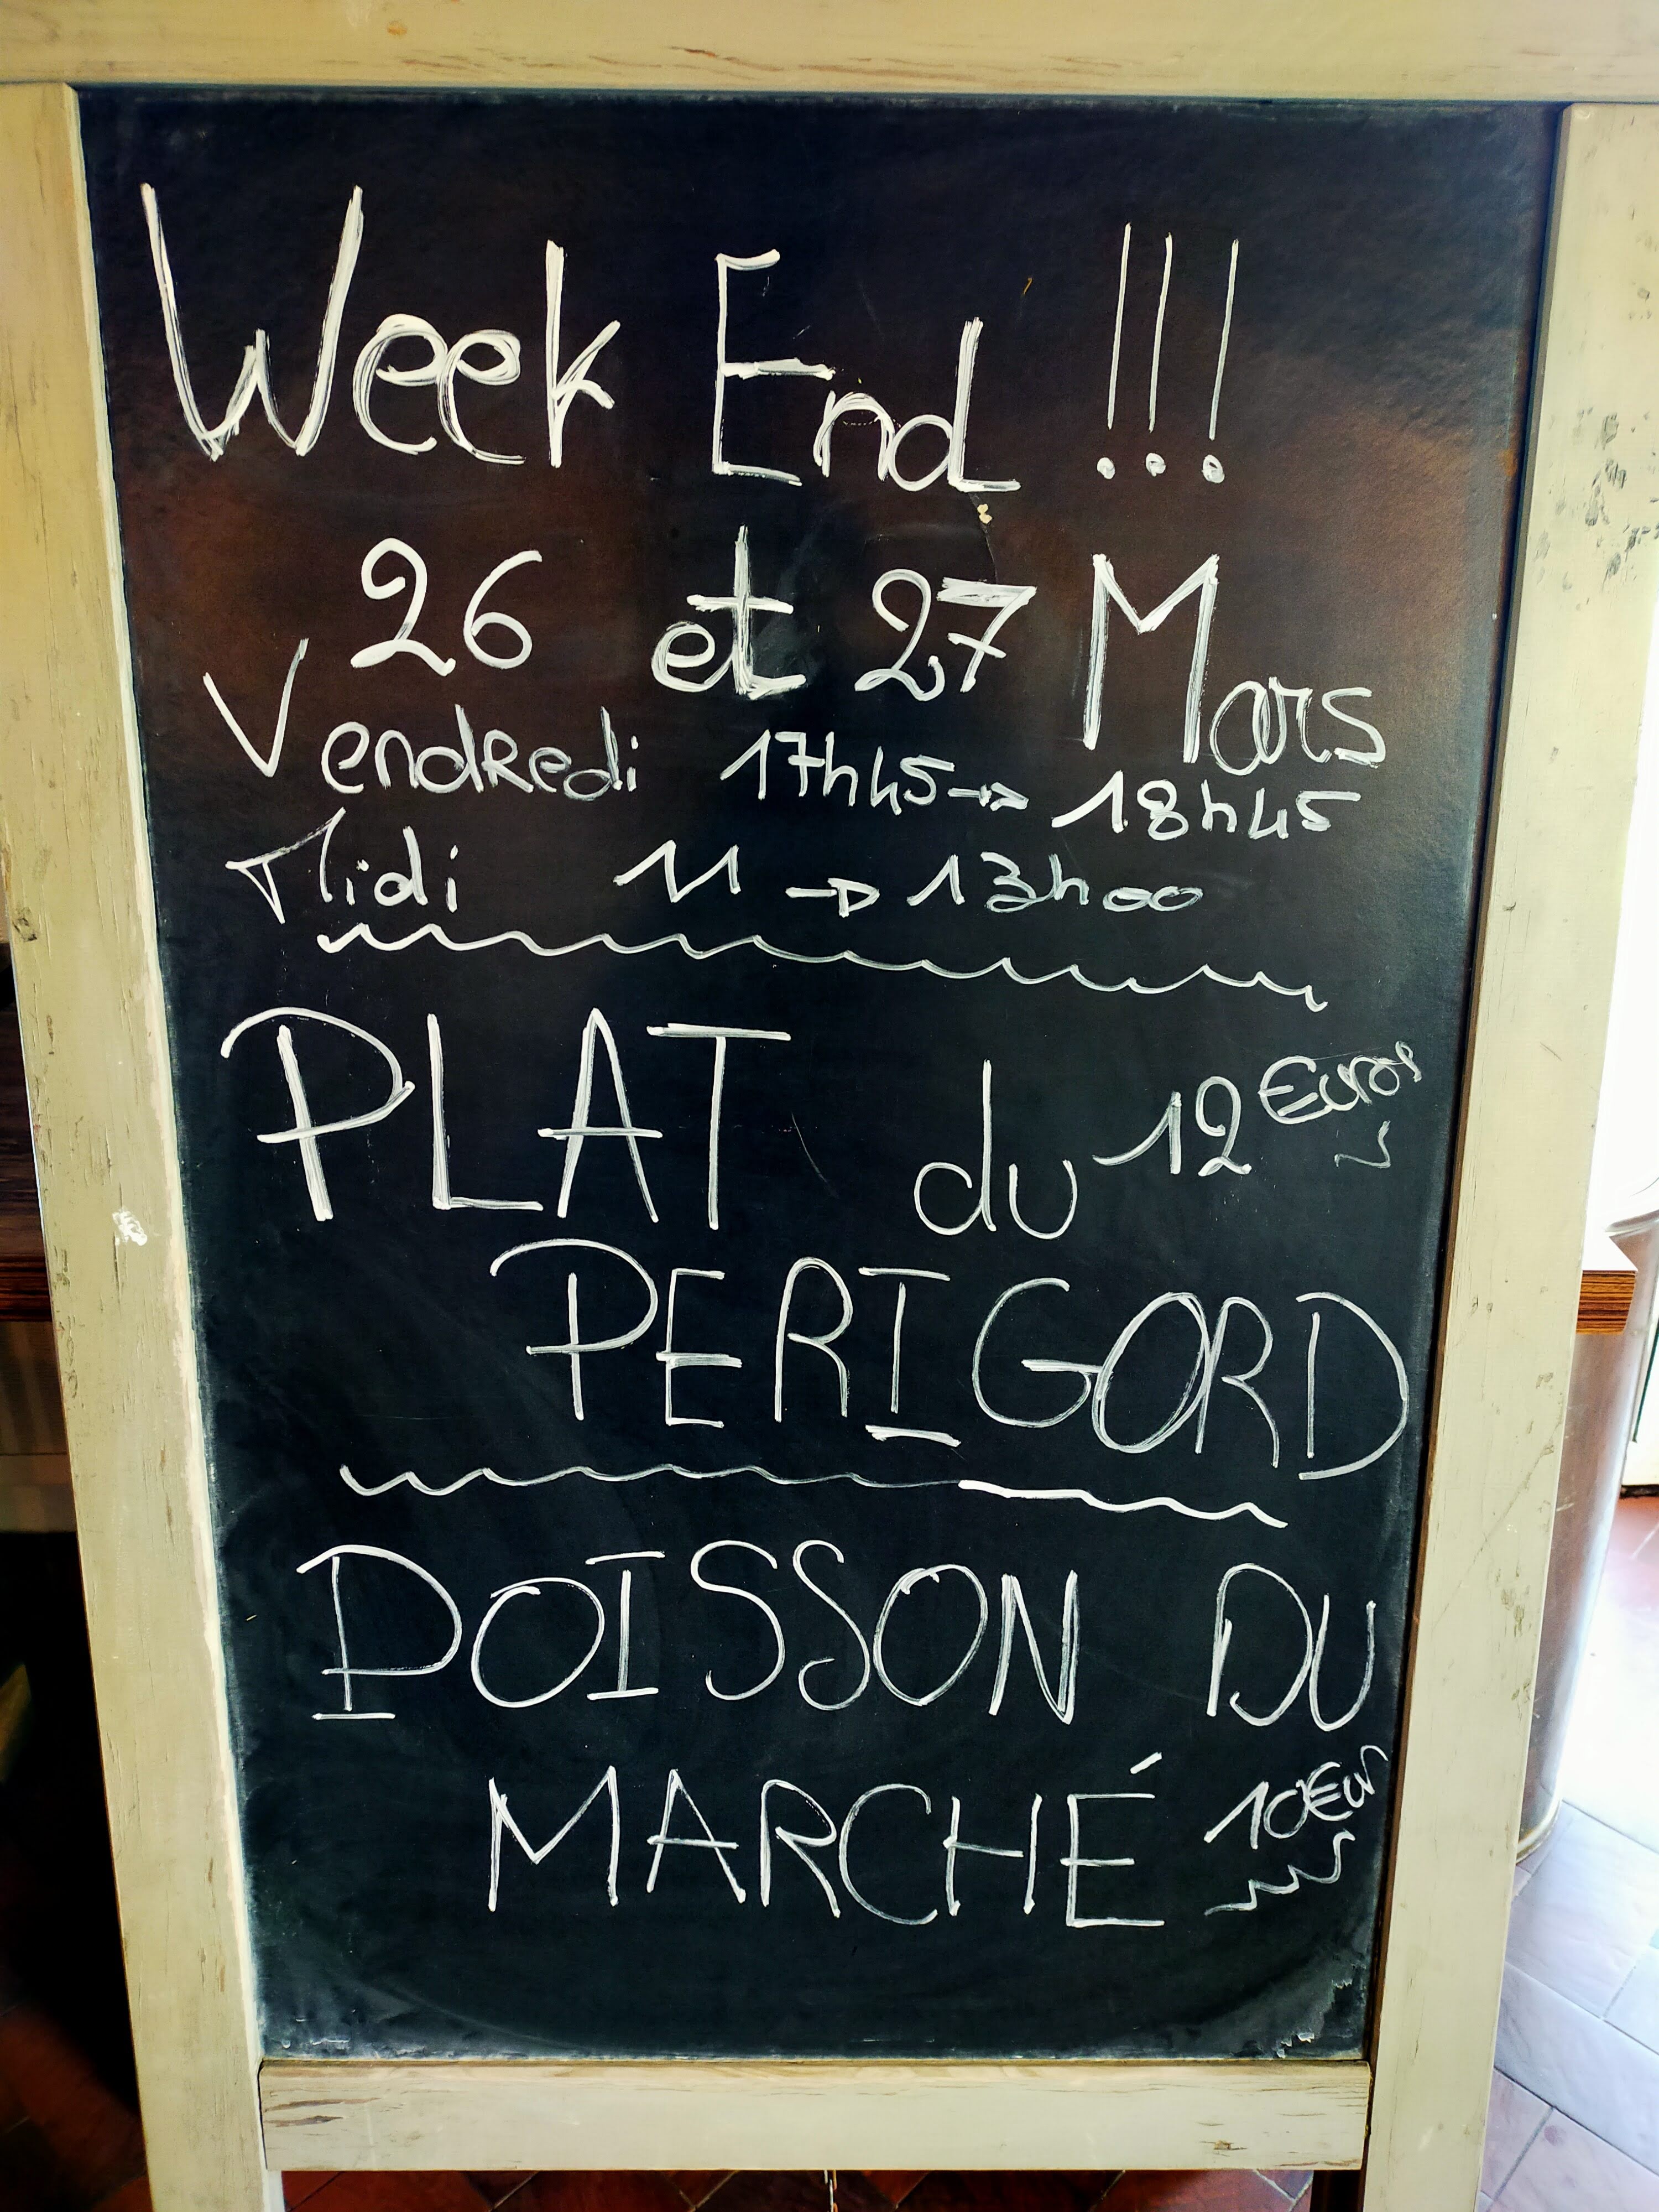 Week End !!!
26 et 27 Mars
Vendredi 17h45 → 18h45
Midi 11 → 13h00
PLAT du 12 Euros
PERIGORD
POISSON DU
MARCHÉ 10Eur